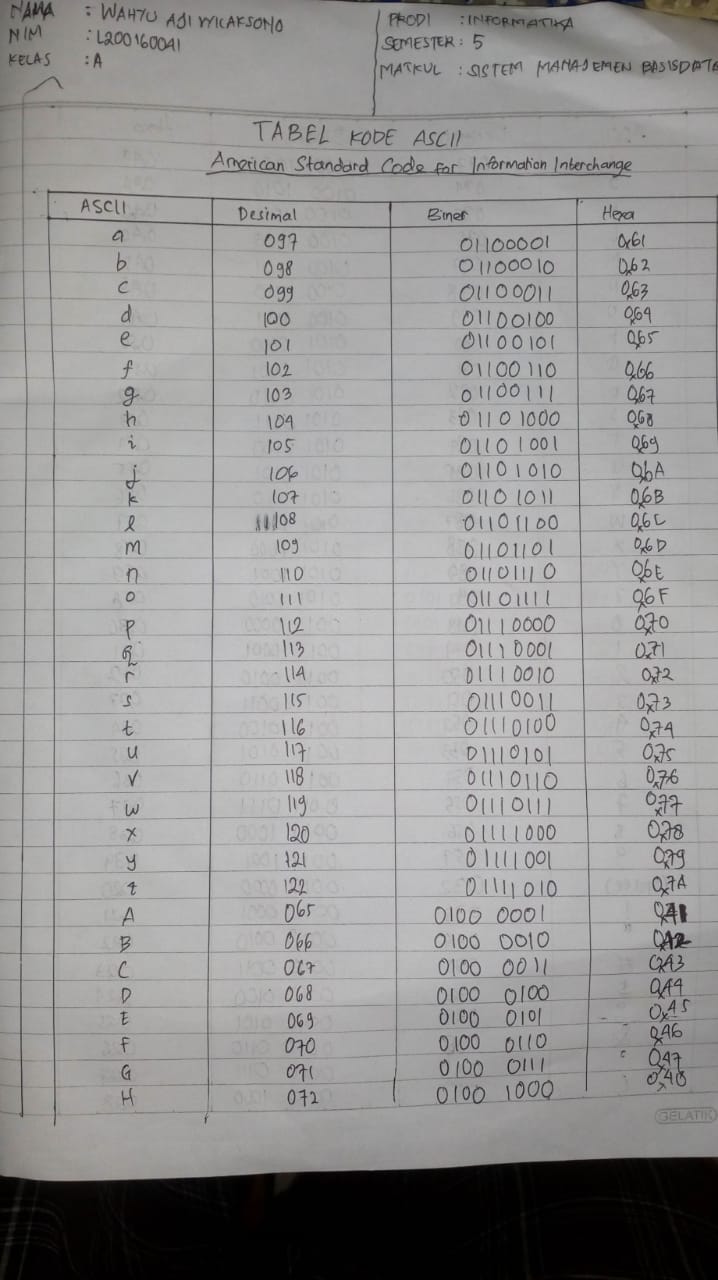 NAMA : WAHYU AJI WICAKSONO
NIM : L200160041
KELAS : A
PRODI : INFORMATIKA
SEMESTER : 5
MATKUL : SISTEM MANAJEMEN BASISDATA
TABEL KODE ASCII
American Standard Code for Information Interchange
ASCII Desimal Biner Hexa
a 097 01100001 0x61
b 098 01100010 0x62
c 099 01100011 0x63
d 100 01100100 0x64
e 101 01100101 0x65
f 102 01100110 0x66
g 103 01100111 0x67
h 104 01101000 0x68
i 105 01101001 0x69
j 106 01101010 0x6A
k 107 01101011 0x6B
l 108 01101100 0x6C
m 109 01101101 0x6D
n 110 01101110 0x6E
o 111 01101111 0x6F
p 112 01110000 0x70
q 113 01110001 0x71
r 114 01110010 0x72
s 115 01110011 0x73
t 116 01110100 0x74
u 117 01110101 0x75
v 118 01110110 0x76
w 119 01110111 0x77
x 120 01111000 0x78
y 121 01111001 0x79
z 122 01111010 0x7A
A 065 0100 0001 0x41
B 066 0100 0010 0x42
C 067 0100 0011 0x43
D 068 0100 0100 0x44
E 069 0100 0101 0x45
F 070 0100 0110 0x46
G 071 0100 0111 0x47
H 072 0100 1000 0x48
GELATIK